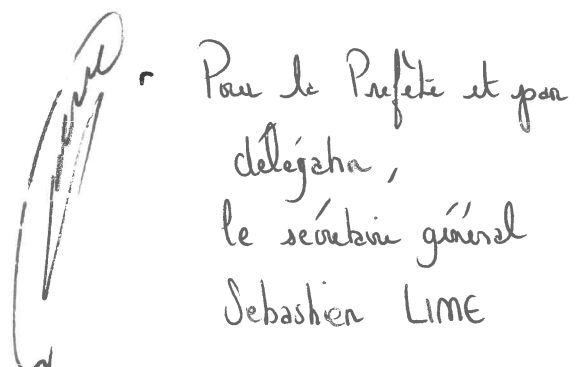 Pour la Préfète et par
délégation,
le secrétaire général
Sébastien LIME